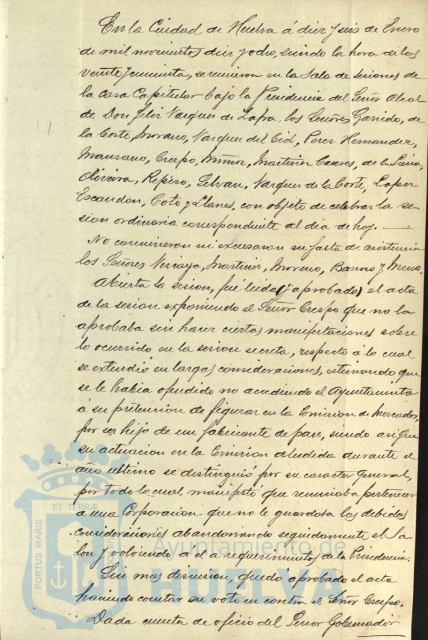 En la Ciudad de Huelva á diez y seis de Enero
de mil novecientos diez y ocho, siendo la hora de las
veinte y cincuenta, se reunieron en la Sala de sesiones de
la Casa Capitular bajo la Presidencia del Señor Alcalde
Don Félix Vazquez de Zafra, los Señores Garrido, de
la Corte, Morano, Vazquez del Cid, Perez Hernandez,
Manzano, Crespo, Muñoz, Martinez Cazares, de la
Oliveira, Repiso, Galvan, Vazquez de la Corte, Lopez
Escandon, Coto y Llanes, con objeto de celebrar la se-
sion ordinaria correspondiente al dia de hoy.
No concurrieron ni excusaron su falta de asistencia
los Señores Vizcaya, Martinez, Moreno, Barroso y Mena.
Abierta la sesion, fue leida (y aprobada) el acta
de la sesion exponiendo el Señor Crespo que no la
aprobaba sin hacer ciertas manifestaciones sobre
lo ocurrido en la sesion secreta, respecto á lo cual
se extendió en largas consideraciones, estimando que
se le habia ofendido no accediendo el Ayuntamiento
á su pretension de figurar en la Comision de Mercados,
por ser hijo de un fabricante de pan, siendo asi que
su actuacion en la Comision aludida durante el
año ultimo se distinguió por su caracter general,
por todo lo cual manifestó que renunciaba pertenecer
á una Corporacion que no le guardaba las debidas
consideraciones abandonando seguidamente el Sa-
lon y volviendo á él a requerimientos de la Presidencia.
Sin mas discusion, quedó aprobada el acta
haciendo constar su voto en contra el Señor Crespo.
Dada cuenta de oficio del Señor Gobernador
ET TERRA
PORTUS MARIS
Ayuntamiento de
HUELVA